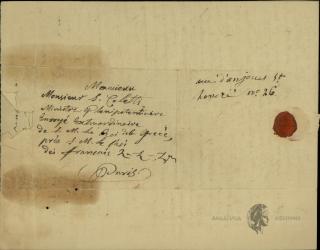 Monsieur
Monsieur S. Coletti
Ministre Plénipotentiaire
Envoyé Extraordinaire
de S. M. Le Roi de la Grèce
près S. M. le Roi
des français
Paris
rue d'anjou St
honoré no. 26